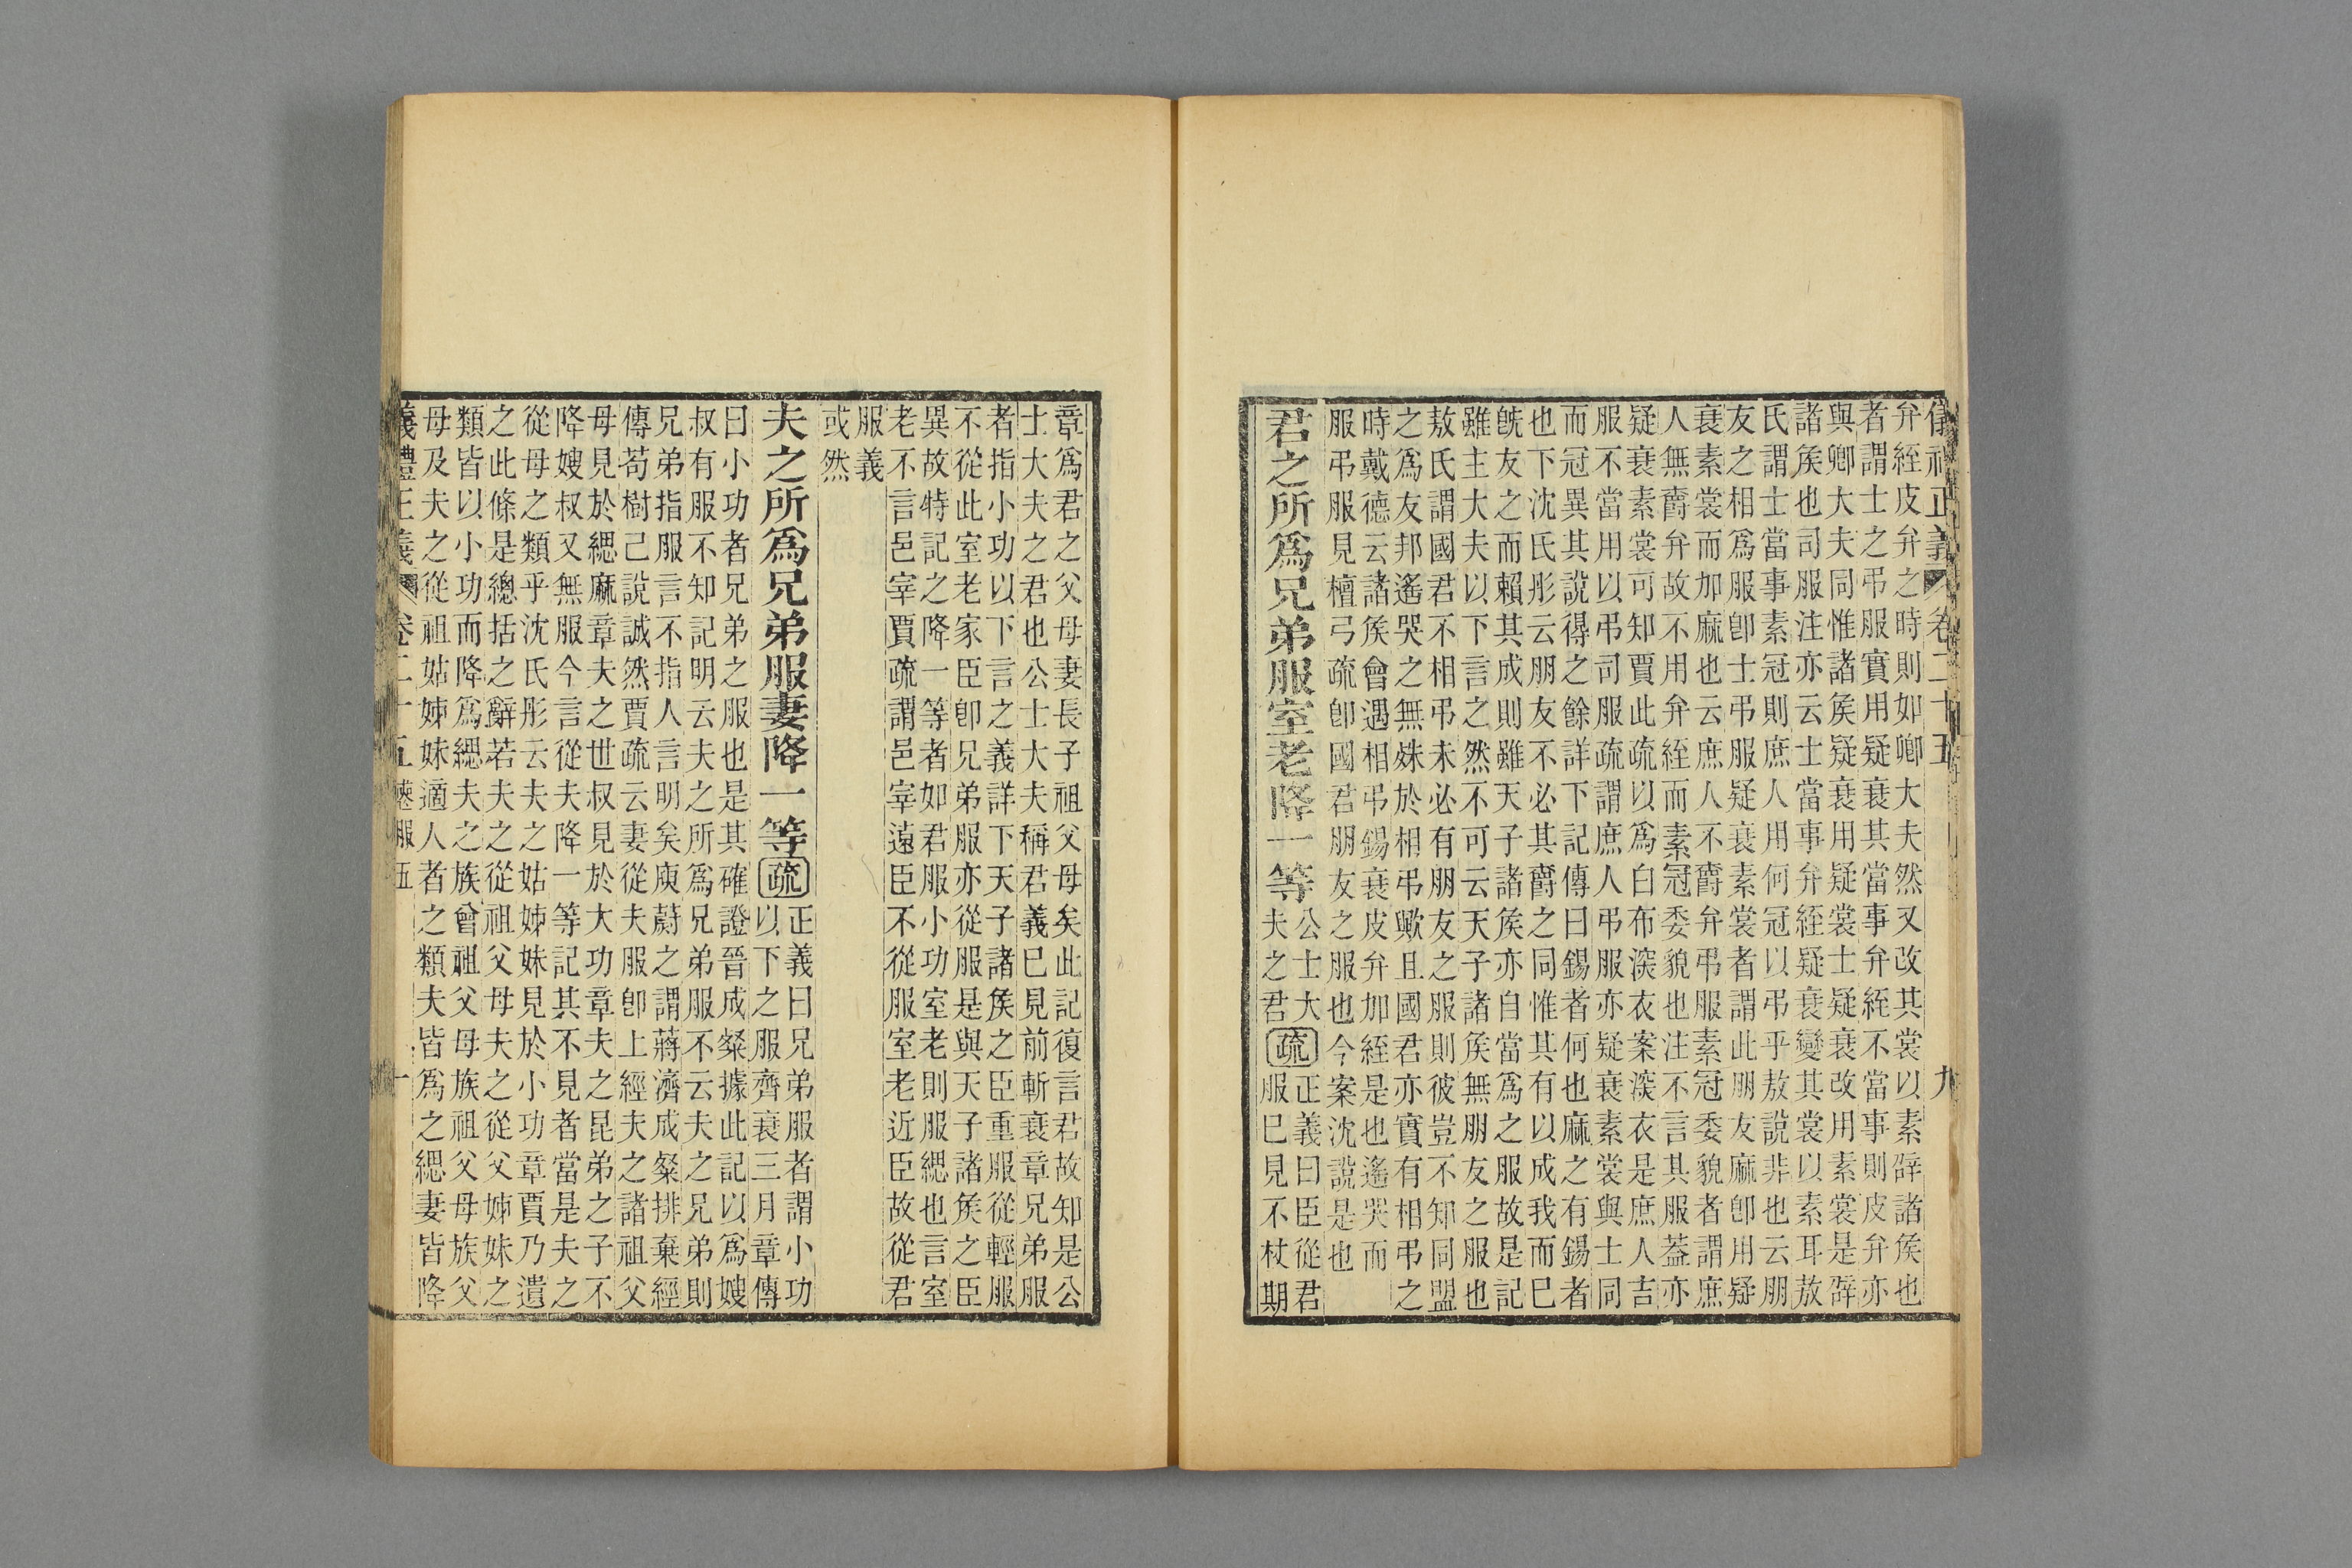 弁絰皮弁之時則如卿大夫然又改其裳以素辟諸矦也
者謂士之弔服實用疑衰其當事弁絰不當事則皮弁亦
與卿大夫同惟諸矦疑衰用疑裳士疑衰改用素裳是辟
諸矦也司服注亦云士當事弁絰疑衰變其裳以素耳敖
氏謂士當事素冠則庶人用何冠以弔乎敖說非也云朋
友之相爲服卽士弔服疑衰素裳者謂此朋友麻卽用疑
衰素裳而加麻也云庶人不爵弁弔服素冠委貌者謂庶
人無爵弁故不用弁絰而素冠委貌也注不言其服葢亦
疑衰素裳可知賈此疏以爲白布深衣案深衣是庶人吉
服不當用以弔司服疏謂庶人弔服亦疑衰素裳與士同
而冠異其說得之餘詳下記傳曰錫者何也麻之有錫者
也下沈氏彤云朋友不必其爵之同惟其有以成我而巳
旣友之而賴其成則雖天子諸矦亦自當爲之服故是記
雖主大夫以下言之然不可云天子諸矦無朋友之服也
敖氏謂國君不相弔未必有朋友之服則彼豈不知同盟
之爲友邦遙哭之無姝於相弔歟且國君亦實有相弔之
時戴德云諸矦會遇相弔錫衰皮弁加絰是也遙哭而
服弔服見檀弓疏卽國君朋友之服也今案沈說是也
君之所爲兄弟服室老降一等 公士大夫之君 疏 正義曰臣從君服巳見不杖期
章爲君之父母妻長子祖父母矣此記復言君故知是公
士大夫之君也公士大夫稱君義巳見前斬衰章兄弟服
者指小功以下言之義詳下天子諸矦之臣重服從輕服
不從此室老家臣卽兄弟服亦從服是與天子諸矦之臣
異故特記之降一等者如君服小功室老則服緦也言室
老不言邑宰賈疏謂邑宰遠臣不從服室老近臣故從君
服義
或然
夫之所爲兄弟服妻降一等 疏 正義曰兄弟服者謂小功以下之服齊衰三月章傳
曰小功者兄弟之服也是其確證晉成粲據此記以爲嫂
叔有服不知記明云夫之所爲兄弟服不云夫之兄弟則
兄弟指服言不指人言明矣庾蔚之謂蔣濟成粲排棄經
傳苟樹己說誠然賈疏云妻從夫服卽上經夫之諸祖父
母見於緦麻章夫之世叔見於大功章夫之昆弟之子不
降嫂叔又無服今言從夫降一等記其不見者當是夫之
從母之類乎沈氏彤云夫之姑姊妹見於小功章賈乃遺
之此條是總括之辭若夫之從祖父母夫之從父姊妹之
類皆以小功而降爲緦夫之族曾祖父母族祖父母族父
母及夫之從祖姑姊妹適人者之類夫皆爲之緦妻皆降